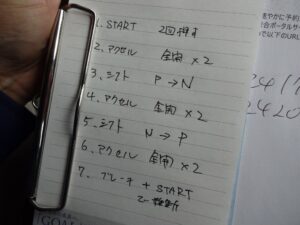 1. START 2回押す
2. アクセル 全開×2
3. シフト P→N
4. アクセル 全開×2
5. シフト N→P
6. アクセル 全開×2
7. ブレーキ + START
GOA
をやかに予約
合ポータルサイ
で以下のURL
2417
2420